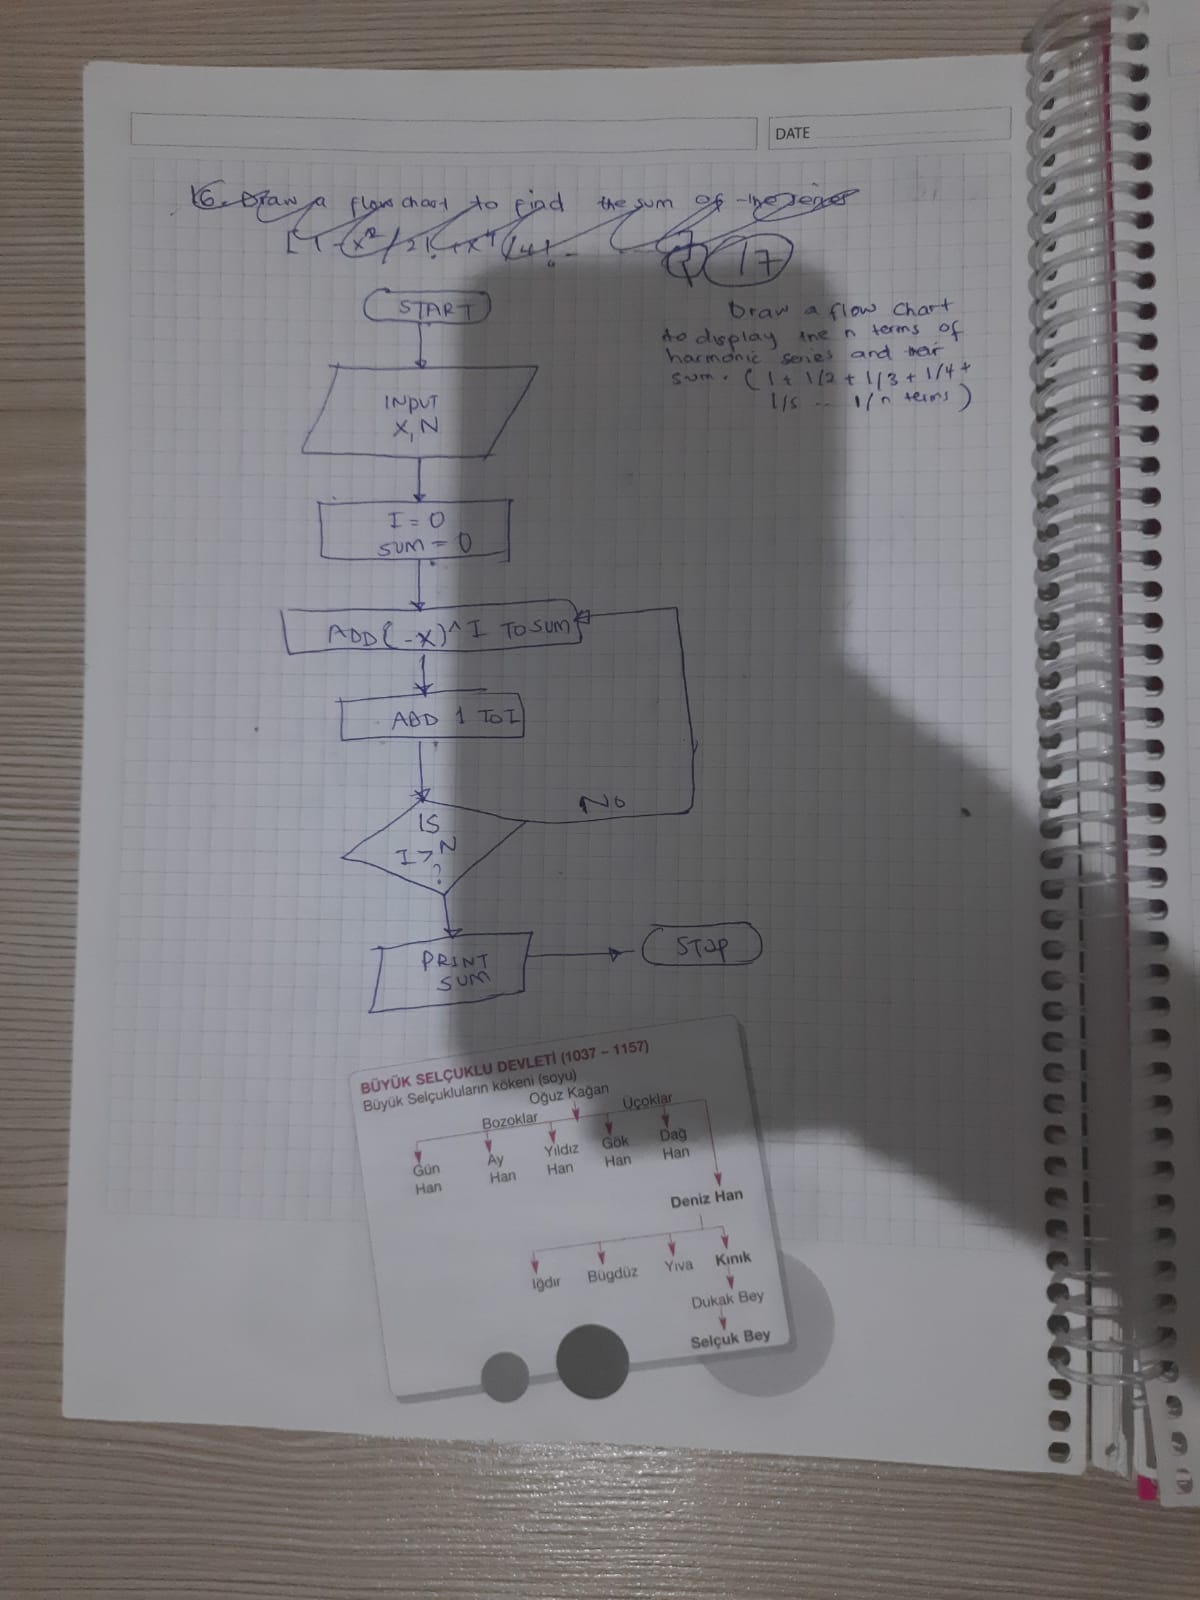 DATE
16. Draw a flow chart to find the sum of the series
[1 - (x²/2! + x⁴/4! -
Q 17
START
Draw a flow chart
to display the n terms of
harmonic series and their
sum. (1 + 1/2 + 1/3 + 1/4 +
1/5 -- 1/n terms)
INPUT
X, N
I = 0
SUM = 0
ADD (-X)^I TO SUM
ADD 1 TO I
No
IS
I > N
?
PRINT
SUM
STOP
BÜYÜK SELÇUKLU DEVLETİ (1037 – 1157)
Büyük Selçukluların kökeni (soyu)
Oğuz Kağan
Bozoklar
Üçoklar
Gün
Han
Ay
Han
Yıldız
Han
Gök
Han
Dağ
Han
Deniz Han
Iğdır
Bügdüz
Yıva
Kınık
Dukak Bey
Selçuk Bey